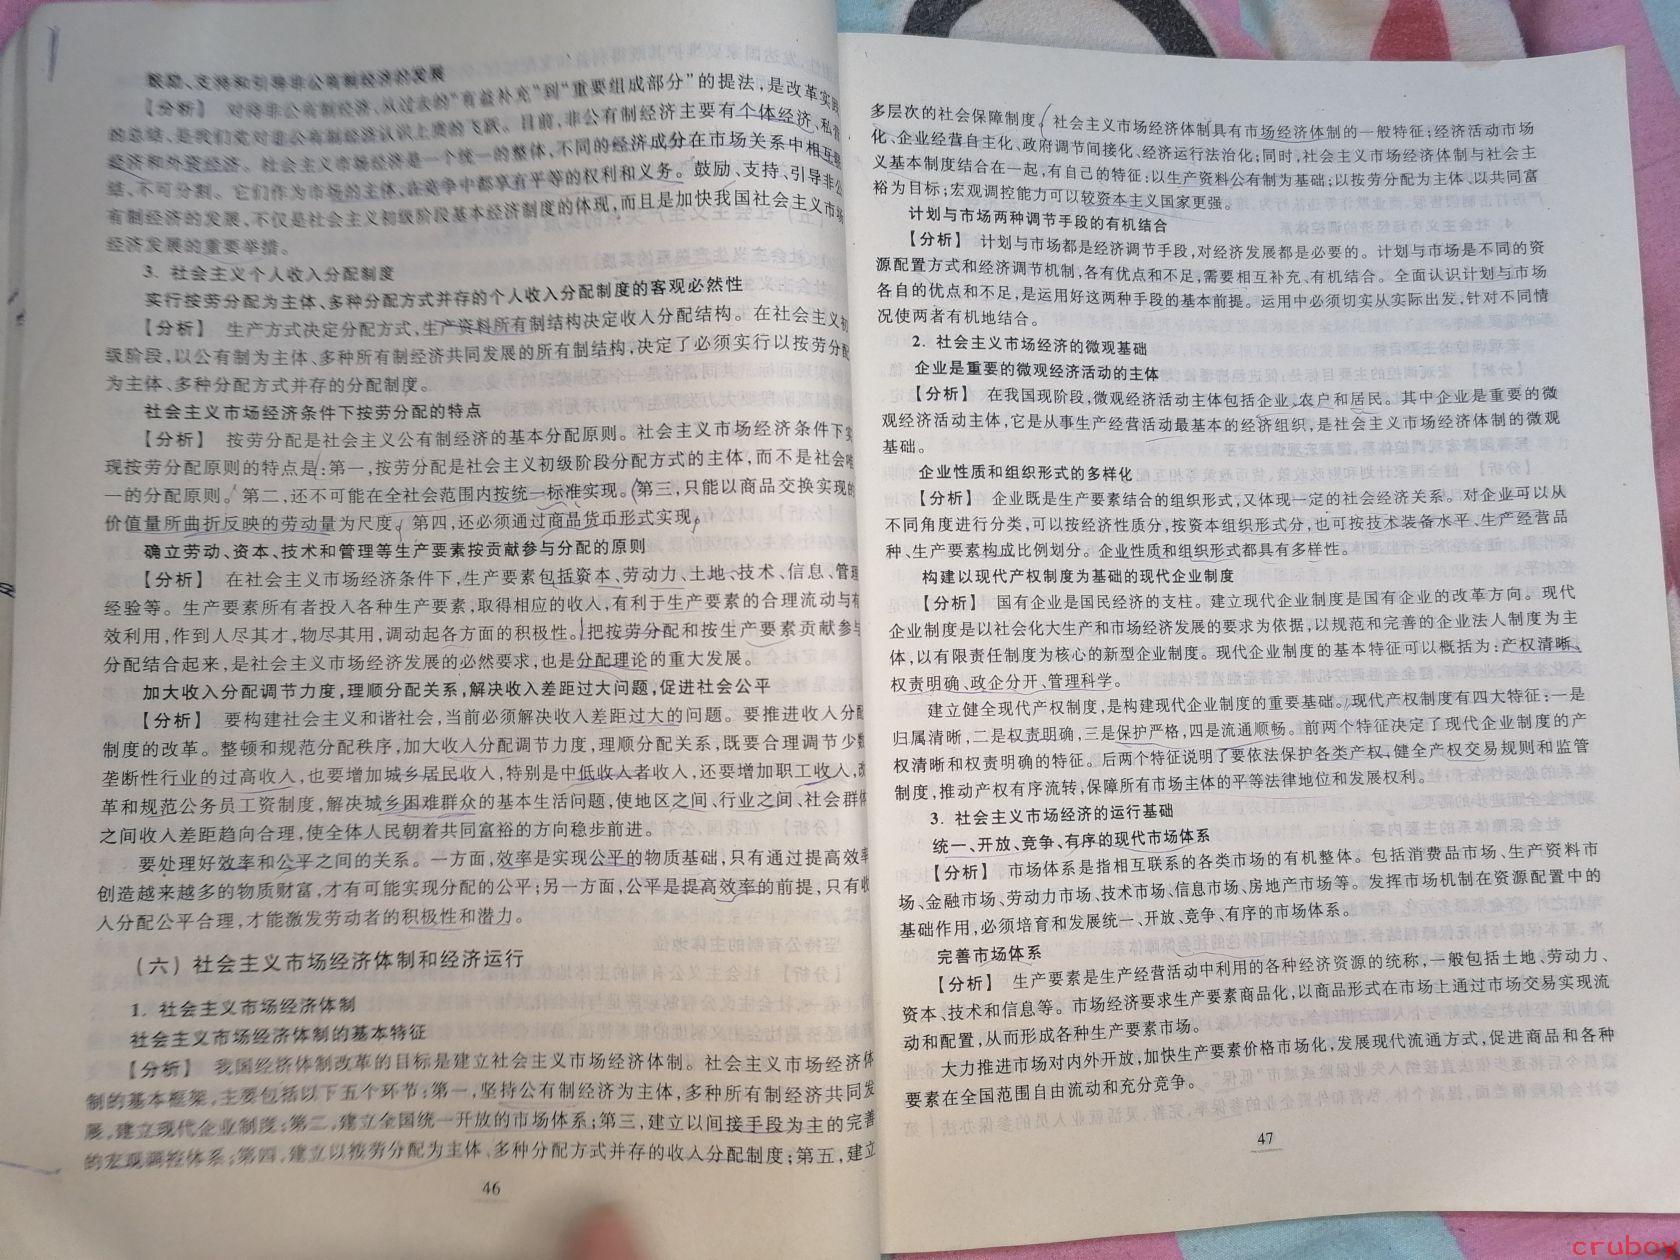 鼓励、支持和引导非公有制经济的发展
【分析】 对待非公有制经济,从过去的“有益补充”到“重要组成部分”的提法,是改革实践
的总结,是我们党对非公有制经济认识上质的飞跃。目前,非公有制经济主要有个体经济,私营
经济和外资经济。社会主义市场经济是一个统一的整体,不同的经济成分在市场关系中相互
结,不可分割。它们作为市场的主体,在竞争中都享有平等的权利和义务。鼓励、支持、引导非公
有制经济的发展,不仅是社会主义初级阶段基本经济制度的体现,而且是加快我国社会主义市场
经济发展的重要举措。
3. 社会主义个人收入分配制度
实行按劳分配为主体、多种分配方式并存的个人收入分配制度的客观必然性
【分析】 生产方式决定分配方式,生产资料所有制结构决定收入分配结构。在社会主义初
级阶段,以公有制为主体、多种所有制经济共同发展的所有制结构,决定了必须实行以按劳分配
为主体、多种分配方式并存的分配制度。
社会主义市场经济条件下按劳分配的特点
【分析】 按劳分配是社会主义公有制经济的基本分配原则。社会主义市场经济条件下实
现按劳分配原则的特点是:第一,按劳分配是社会主义初级阶段分配方式的主体,而不是社会唯
一的分配原则。第二,还不可能在全社会范围内按统一标准实现。第三,只能以商品交换实现的
价值量所曲折反映的劳动量为尺度。第四,还必须通过商品货币形式实现。
确立劳动、资本、技术和管理等生产要素按贡献参与分配的原则
【分析】 在社会主义市场经济条件下,生产要素包括资本、劳动力、土地、技术、信息、管理
经验等。生产要素所有者投入各种生产要素,取得相应的收入,有利于生产要素的合理流动与有
效利用,作到人尽其才,物尽其用,调动起各方面的积极性。把按劳分配和按生产要素贡献参与
分配结合起来,是社会主义市场经济发展的必然要求,也是分配理论的重大发展。
加大收入分配调节力度,理顺分配关系,解决收入差距过大问题,促进社会公平
【分析】 要构建社会主义和谐社会,当前必须解决收入差距过大的问题。要推进收入分配
制度的改革。整顿和规范分配秩序,加大收入分配调节力度,理顺分配关系,既要合理调节少数
垄断性行业的过高收入,也要增加城乡居民收入,特别是中低收入者收入,还要增加职工收入,改
革和规范公务员工资制度,解决城乡困难群众的基本生活问题,使地区之间、行业之间、社会群体
之间收入差距趋向合理,使全体人民朝着共同富裕的方向稳步前进。
要处理好效率和公平之间的关系。一方面,效率是实现公平的物质基础,只有通过提高效率
创造越来越多的物质财富,才有可能实现分配的公平;另一方面,公平是提高效率的前提,只有收
入分配公平合理,才能激发劳动者的积极性和潜力。
(六)社会主义市场经济体制和经济运行
1. 社会主义市场经济体制
社会主义市场经济体制的基本特征
【分析】 我国经济体制改革的目标是建立社会主义市场经济体制。社会主义市场经济体
制的基本框架,主要包括以下五个环节:第一,坚持公有制经济为主体,多种所有制经济共同发
展,建立现代企业制度;第二,建立全国统一开放的市场体系;第三,建立以间接手段为主的完善
的宏观调控体系;第四,建立以按劳分配为主体、多种分配方式并存的收入分配制度;第五,建立
46
多层次的社会保障制度。社会主义市场经济体制具有市场经济体制的一般特征:经济活动市场
化、企业经营自主化、政府调节间接化、经济运行法治化;同时,社会主义市场经济体制与社会主
义基本制度结合在一起,有自己的特征:以生产资料公有制为基础;以按劳分配为主体、以共同富
裕为目标;宏观调控能力可以较资本主义国家更强。
计划与市场两种调节手段的有机结合
【分析】 计划与市场都是经济调节手段,对经济发展都是必要的。计划与市场是不同的资
源配置方式和经济调节机制,各有优点和不足,需要相互补充、有机结合。全面认识计划与市场
各自的优点和不足,是运用好这两种手段的基本前提。运用中必须切实从实际出发,针对不同情
况使两者有机地结合。
2. 社会主义市场经济的微观基础
企业是重要的微观经济活动的主体
【分析】 在我国现阶段,微观经济活动主体包括企业、农户和居民。其中企业是重要的微
观经济活动主体,它是从事生产经营活动最基本的经济组织,是社会主义市场经济体制的微观
基础。
企业性质和组织形式的多样化
【分析】 企业既是生产要素结合的组织形式,又体现一定的社会经济关系。对企业可以从
不同角度进行分类,可以按经济性质分,按资本组织形式分,也可按技术装备水平、生产经营品
种、生产要素构成比例划分。企业性质和组织形式都具有多样性。
构建以现代产权制度为基础的现代企业制度
【分析】 国有企业是国民经济的支柱。建立现代企业制度是国有企业的改革方向。现代
企业制度是以社会化大生产和市场经济发展的要求为依据,以规范和完善的企业法人制度为主
体,以有限责任制度为核心的新型企业制度。现代企业制度的基本特征可以概括为:产权清晰、
权责明确、政企分开、管理科学。
建立健全现代产权制度,是构建现代企业制度的重要基础。现代产权制度有四大特征:一是
归属清晰,二是权责明确,三是保护严格,四是流通顺畅。前两个特征决定了现代企业制度的产
权清晰和权责明确的特征。后两个特征说明了要依法保护各类产权,健全产权交易规则和监管
制度,推动产权有序流转,保障所有市场主体的平等法律地位和发展权利。
3. 社会主义市场经济的运行基础
统一、开放、竞争、有序的现代市场体系
【分析】 市场体系是指相互联系的各类市场的有机整体。包括消费品市场、生产资料市
场、金融市场、劳动力市场、技术市场、信息市场、房地产市场等。发挥市场机制在资源配置中的
基础作用,必须培育和发展统一、开放、竞争、有序的市场体系。
完善市场体系
【分析】 生产要素是生产经营活动中利用的各种经济资源的统称,一般包括土地、劳动力、
资本、技术和信息等。市场经济要求生产要素商品化,以商品形式在市场上通过市场交易实现流
动和配置,从而形成各种生产要素市场。
大力推进市场对内外开放,加快生产要素价格市场化,发展现代流通方式,促进商品和各种
要素在全国范围自由流动和充分竞争。
47
crubox